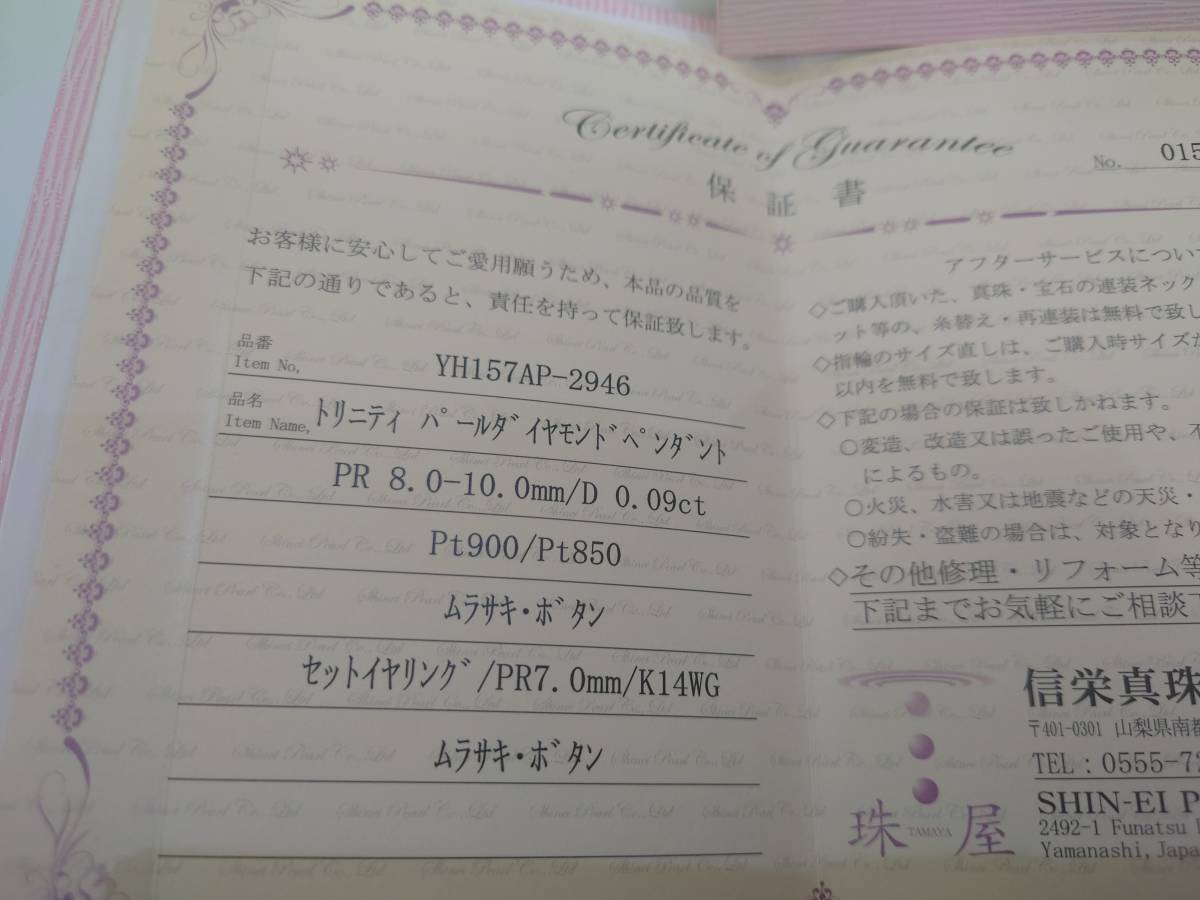 Certificate of Guarantee
保証書
No. 015
お客様に安心してご愛用願うため、本品の品質を
下記の通りであると、責任を持って保証致します。
品番
Item No, YH157AP-2946
品名
Item Name, トリニティ パールダイヤモンドペンダント
PR 8.0-10.0mm/D 0.09ct
Pt900/Pt850
ムラサキ・ボタン
セットイヤリング/PR7.0mm/K14WG
ムラサキ・ボタン
アフターサービスについて
◇ご購入頂いた、真珠・宝石の連装ネック
ット等の、糸替え・再連装は無料で致し
◇指輪のサイズ直しは、ご購入時サイズか
以内を無料で致します。
◇下記の場合の保証は致しかねます。
○変造、改造又は誤ったご使用や、不
によるもの。
○火災、水害又は地震などの天災・
○紛失・盗難の場合は、対象となり
◇その他修理・リフォーム等
下記までお気軽にご相談下
珠 TAMAYA 屋
信栄真珠
〒401-0301 山梨県南都
TEL : 0555-72
SHIN-EI P
2492-1 Funatsu
Yamanashi, Japa